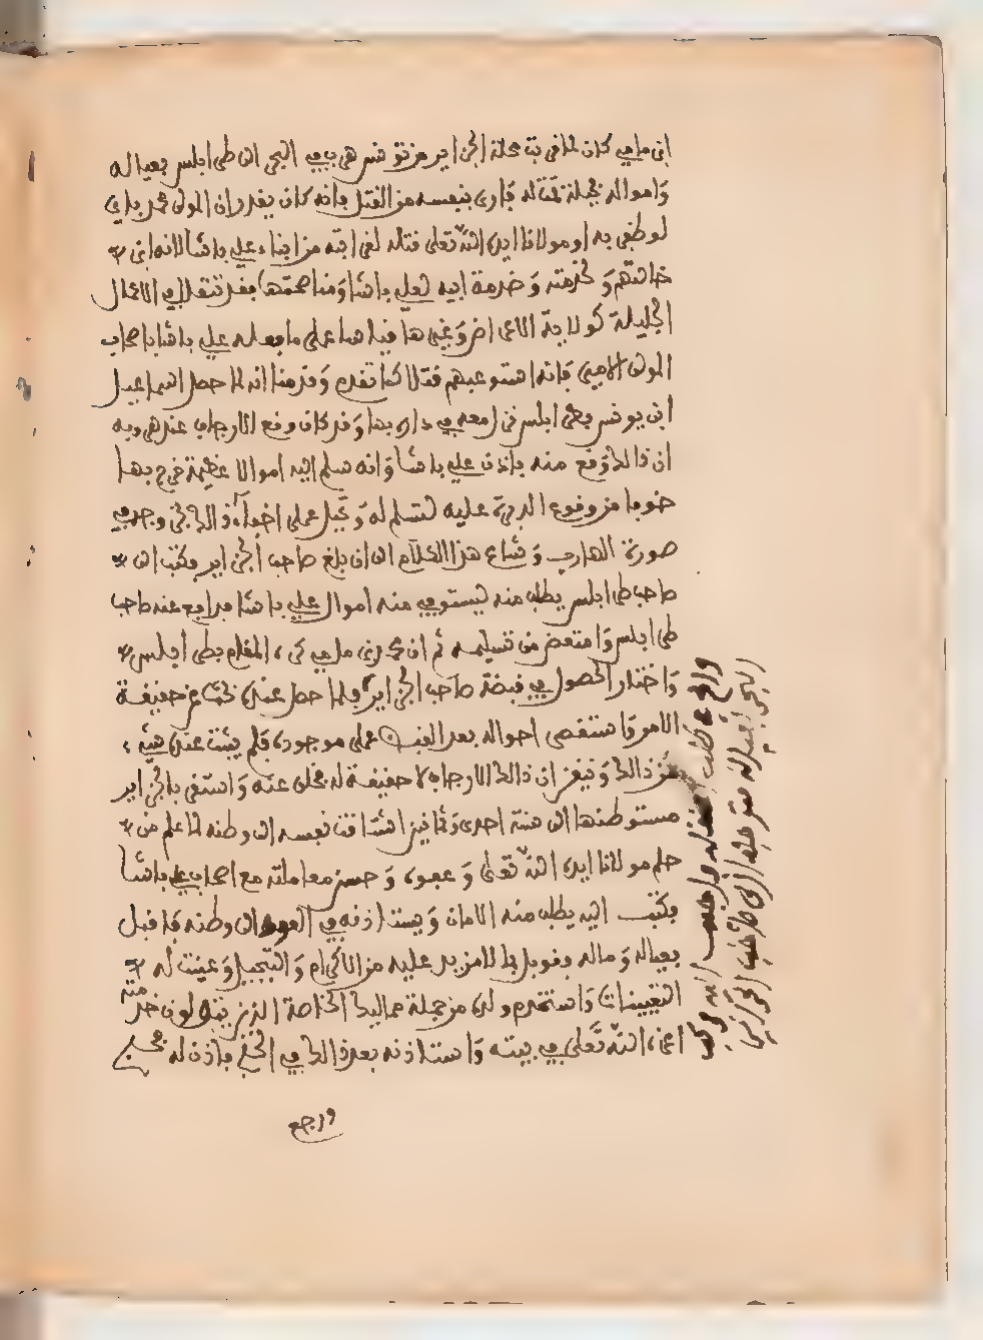 ابن مامي كان لما قربت محلة الجزاير من تونس هرب في البحر الى طرابلس بعياله
وَامواله بجملة ثمّاله فارى بنفسه من القتل فانه كان يقدر ان المولى محمد باي
لو ظفر به او مولانا ايده اللّه تعلى قتله لقرابته من ابناء علي باشا لانه ابن
خالتهم وَلخدمته وَخدمة ابيه لعلي باشا وَمناصحتهما فقد تنقلا في الاعمال
الجليلة كولاية الاعراض وَغيرها قياسا على ما فعله علي باشا باصحاب
المولى الامير فانه استوعبهم قتلا كما تقدم وَقدمنا انه لما حصل اسماعيل
ابن يونس بطرابلس نزل معه في داره بها وَقد كان وقع الارجاف عند هروبه
ان ذالك وَقع منه باذن علي باشا وَانه سلم اليه اموالا عظيمة خرج بها
خوفا من وقوع الدبرة عليه لتسلم له وَتحيل على اخفاء ذالك بخروجه في
صورة الهارب وَشاع هذا الكلام الى ان بلغ صاحب الجزاير فكتب الى
صاحب طرابلس يطلب منه ليستوفي منه اموال علي باشا فدافع عنه صاحب
طرابلس وَامتعض من تسليمه ثم ان محمد بن مامي كره المقام بطرابلس
وَاختار الحصول في قبضة صاحب الجزاير فلما حصل عنده بحث عن حقيقة
الامر وَاستقصى احواله بعد القبض على موجوده فلم يثبت عنده شيء
من ذالك وَتيقن ان ذالك الارجاف لا حقيقة له فخلى عنه وَاستقر بالجزاير
مستوطنها الى سنة احدى وَثمانين اشتاقت نفسه الى وطنه لما علم من
حلم مولانا ايده اللّه تعلى وَعفوه وَحسن معاملته مع اصحاب علي باشا
فكتب اليه يطلب منه الامان وَيستاذنه في العود الى وطنه فاقبل
بعياله وَماله فقوبل بما لا مزيد عليه من الاكرام وَالتبجيل وَعينت له
التعيينات وَاستخدم ولده من جملة مماليك الخاصة الذين يتولون خدمته
اعزه اللّه تعلى في بيته وَاستاذنه بعد ذالك في الحج فاذن له فحج
ورجع